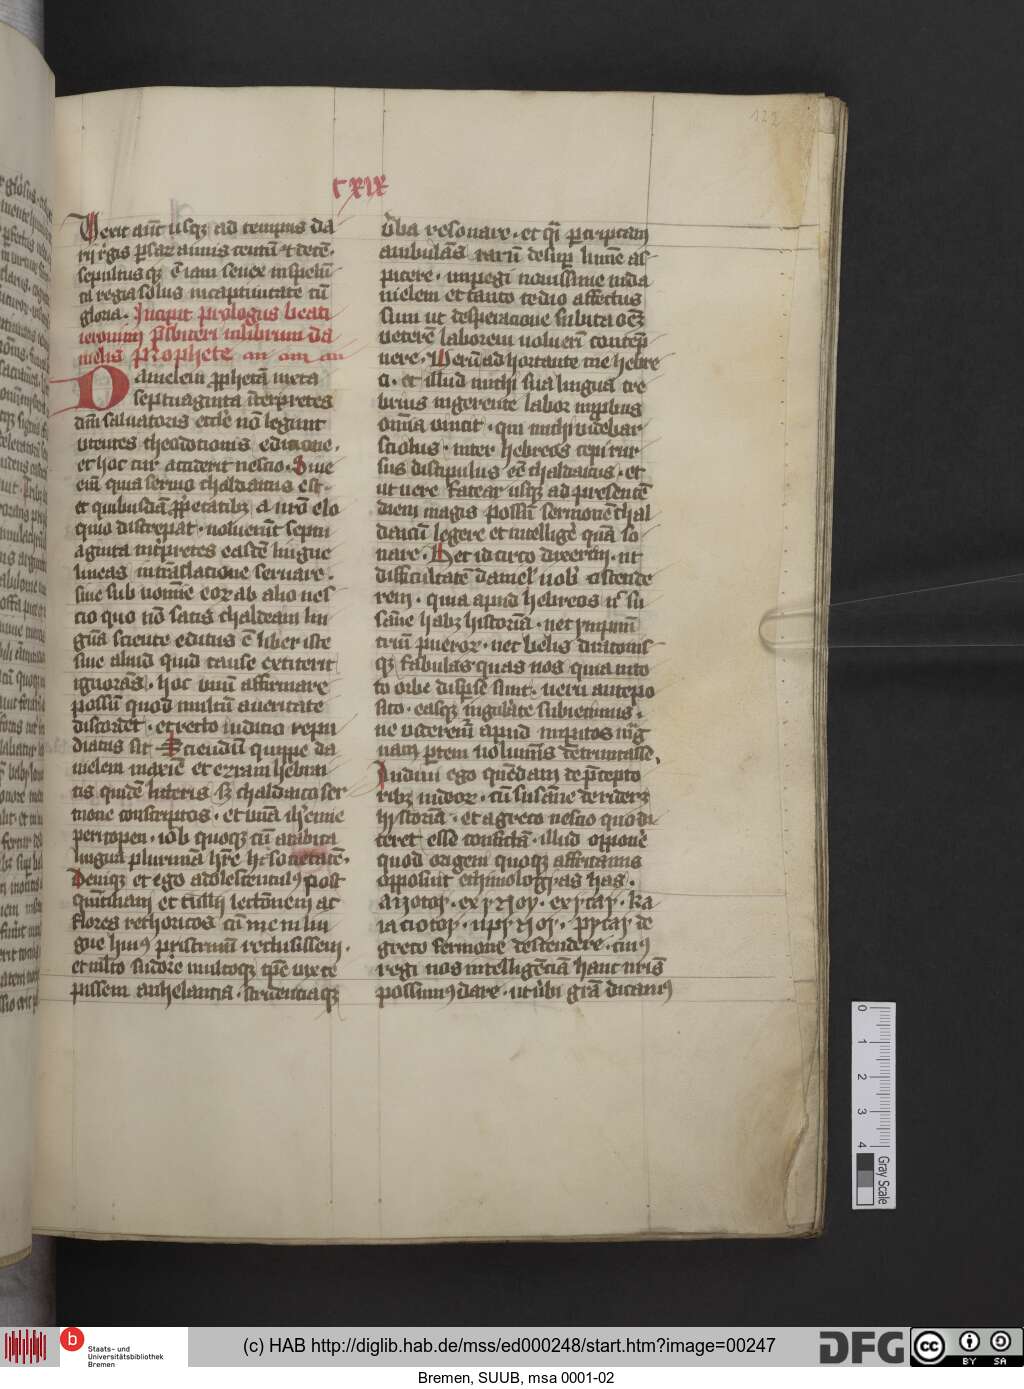 cxix
122
Vixit aūt usqꝫ ad tempus da
rij r̄gis ꝑsaꝝ annis centū ⁊ decē.
sepultusqꝫ ē iam senex in spelū
ca regia solus in captiuitate cū
gloria. Incipit prologus beati
ieronimi p̄sbiteri in librum da
nielis prophete
Danielem ꝓphetā iuxta
septuaginta īterpretes
dn̄i saluatoris eccl̄e nō legunt
utentes theodotionis edicione.
et hoc cur acciderit nescio. Siue
eni̅ quia sermo chaldaicus est
et quibusdā ꝓp̄etatibꝫ a nr̄o elo
quio discrepat. noluerūt septu
aginta int̄pretes easdē lingue
lineas in trāslatione seruare.
siue sub nomīe eoꝝ ab alio nes
cio quo nō satis chaldeam lin
guā sciente editus ē liber iste
siue aliud quid cause extiterit
ignorās. hoc unū affirmare
possū quod multū a ueritate
discordet. et recto iudicio repu
diatus sit. Sciendū quippe da
nielem maxīe et ezram hebrai
cis quidē litteris sꝫ chaldaico ser
mone conscriptos. et unā iħemie
pericopen. iob quoqꝫ cū arabica
lingua plurimā hr̄e societatē.
Deniqꝫ et ego adolescentulꝰ post
quintiliani et tullij lectōnem ac
flores rethoricos cū me in lin
gue huiꝰ pristrinū reclusissem.
et ml̄to sudore multoqꝫ tp̄e uix ce
pissem anhelancia. stridenciaqꝫ
ūba resonare. et q̄i ꝑ criptam
ambulās rarū desuꝑ lumē as
picere. impegi nouissime in da
nielem et tanto tedio affectus
sum ut desperacione subita oēꝫ
ueterē laborem uoluerī contēp
nere. Verū adhortante me hebre
o. et illud michi sua lingua cre
brius ingerente labor inprobus
omīa uincit. qui michi uidebar
sciolus. inter hebreos cepi rur
sus discipulus eē chaldaicus. et
ut uere fatear usqꝫ ad presentē
diem magis possū sermonē chal
daicū legere et intelligē quā so
nare. Hec idcirco dixerim. ut
difficultatē daniel̓ uob̓ ostende
rem. quia apud hebreos n̄ su
sāne habꝫ historiā. nec ympnū
triū pueroꝝ. nec belis draconis
qꝫ fabulas quas nos quia in to
to orbe disp̄se sunt. ueru antepo
sito. easqꝫ iugulāte subiecimus.
ne uiderem̄ apud inperitos mag̅
nam ꝑtem uolumīs detruncasse.
Audiui ego quēdam de p̄cepto
ribꝫ iudeoꝝ. cū susāne derideret
historiā. et a greco nescio quo di
ceret esse confictā. illud opponē
quod origeni quoqꝫ affricanus
opposuit ethimologyas has.
greco sermone descendere. cuiꝰ
regi nos intelligēciā hanc nr̄is
possumꝰ dare. ut ūbi grā dicamꝰ
0 1 2 3 4
Gray Scale
Staats- und
Universitätsbibliothek
Bremen
(c) HAB http://diglib.hab.de/mss/ed000248/start.htm?image=00247
DFG
cc BY SA
Bremen, SUUB, msa 0001-02